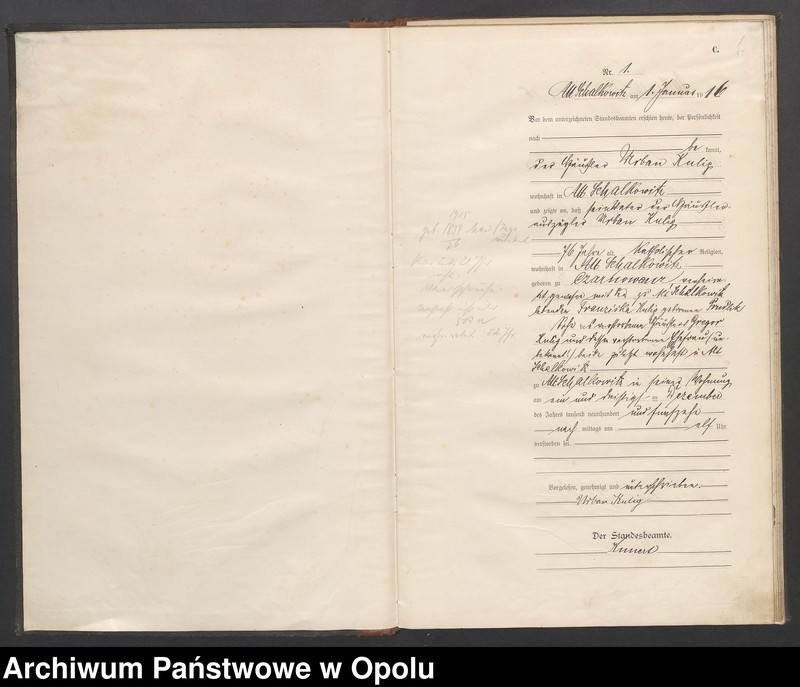 C.
Nr. 1.
Alt Schalkowitz am 1. Januar 1916
Vor dem unterzeichneten Standesbeamten erschien heute, der Persönlichkeit
nach
be kannt,
der Häusler Urban Kulig
wohnhaft in Alt Schalkowitz
und zeigte an, daß sein Vater der Häusler-
auszügler Urban Kulig
76 Jahre alt, katholischer Religion,
wohnhaft in Alt Schalkowitz
geboren zu Czarnowanz verheira-
tet gewesen mit der zu Alt Schalkowitz
lebenden Franziska Kulig geborenen
Sohn des verstorbenen Häuslers Gregor
Kulig und dessen verstorbenen Ehefrau (un-
bekannt) beide zuletzt wohnhaft in Alt
Schalkowitz
zu Alt Schalkowitz in seiner Wohnung
am ein und dreißigsten Dezember
des Jahres tausend neunhundert und fünfzehn
nach mittags um elf Uhr
verstorben sei.
Vorgelesen, genehmigt und unterschrieben.
Urban Kulig
Der Standesbeamte.
1915
geb 1839
76
Archiwum Państwowe w Opolu